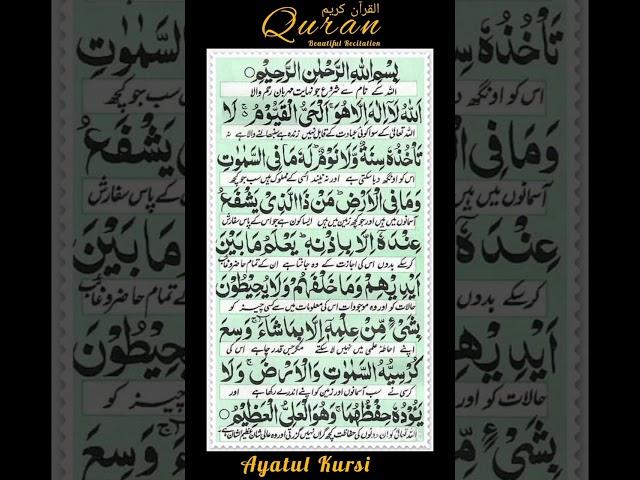 القرآن كريم
Quran
Beautiful Recitation
بِسْمِ اللّٰهِ الرَّحْمٰنِ الرَّحِيْمِ○
اللہ کے نام سے شروع جو نہایت مہربان رحم والا
اَللّٰهُ لَاۤ اِلٰهَ اِلَّا هُوَۚ اَلْحَیُّ الْقَیُّوْمُ۬ۚ لَا
اللہ تعالیٰ کے سوا کوئی عبادت کے قابل نہیں زندہ ہے سنبھالنے والا ہے نہ
تَاْخُذُهٗ سِنَةٌ وَّلَا نَوْمٌؕ لَهٗ مَا فِی السَّمٰوٰتِ
اس کو اونگھ دبا سکتی ہے اور نہ نیند اسی کے مملوک ہیں سب جو کچھ
وَمَا فِی الْاَرْضِؕ مَنْ ذَا الَّذِیْ یَشْفَعُ
آسمانوں میں ہیں اور جو کچھ زمین میں ہیں ایسا کون ہے جو اس کے پاس سفارش
عِنْدَهٗۤ اِلَّا بِاِذْنِهٖؕ یَعْلَمُ مَا بَیْنَ
کرسکے بدوں اس کی اجازت کے وہ جانتا ہے ان کے تمام حاضر و غائب
اَیْدِیْهِمْ وَمَا خَلْفَهُمْۚ وَلَا یُحِیْطُوْنَ
حالات کو اور وہ موجودات اس کی معلومات میں سے کسی چیز کو
بِشَیْءٍ مِّنْ عِلْمِهٖۤ اِلَّا بِمَا شَآءَۚ وَسِعَ
اپنے احاطۂ علمی میں نہیں لا سکتے مگر جس قدر چاہے اس کی
كُرْسِیُّهُ السَّمٰوٰتِ وَالْاَرْضَۚ وَلَا
کرسی نے سب آسمانوں اور زمین کو اپنے اندر لے رکھا ہے اور
یَـُٔوْدُهٗ حِفْظُهُمَاۚ وَهُوَ الْعَلِیُّ الْعَظِیْمُ○
اللہ تعالیٰ کو ان دونوں کی حفاظت کچھ گراں نہیں گزرتی اور وہ عالی شان عظیم الشان ہے
Ayatul Kursi